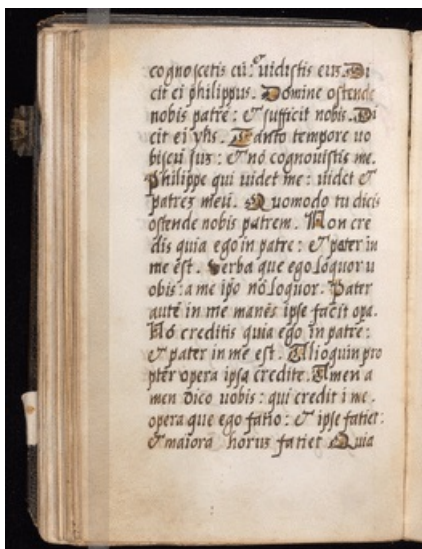 cognoscetis eū: & uidistis euʒ. Di
cit ei philippus. Domine ostende
nobis patrē: & sufficit nobis. Di
cit ei yħs. Tanto tempore uo
biscū suʒ: & nō cognouistis me.
Philippe qui uidet me: uidet &
patreʒ meū. Quomodo tu dicis
ostende nobis patrem. Non cre
dis quia ego in patre: & pater in
me est. Verba que ego loquor u
obis: a me ip̄o nō loquor. Pater
autē in me manēs ipse facit opa.
Nō creditis quia ego in patre:
& pater in me est. Alioquin pro
pter opera ipsa credite. Amen a
men dico uobis: qui credit i me.
opera que ego fatio: & ipse fatiet:
& maiora horuʒ fatiet Quia